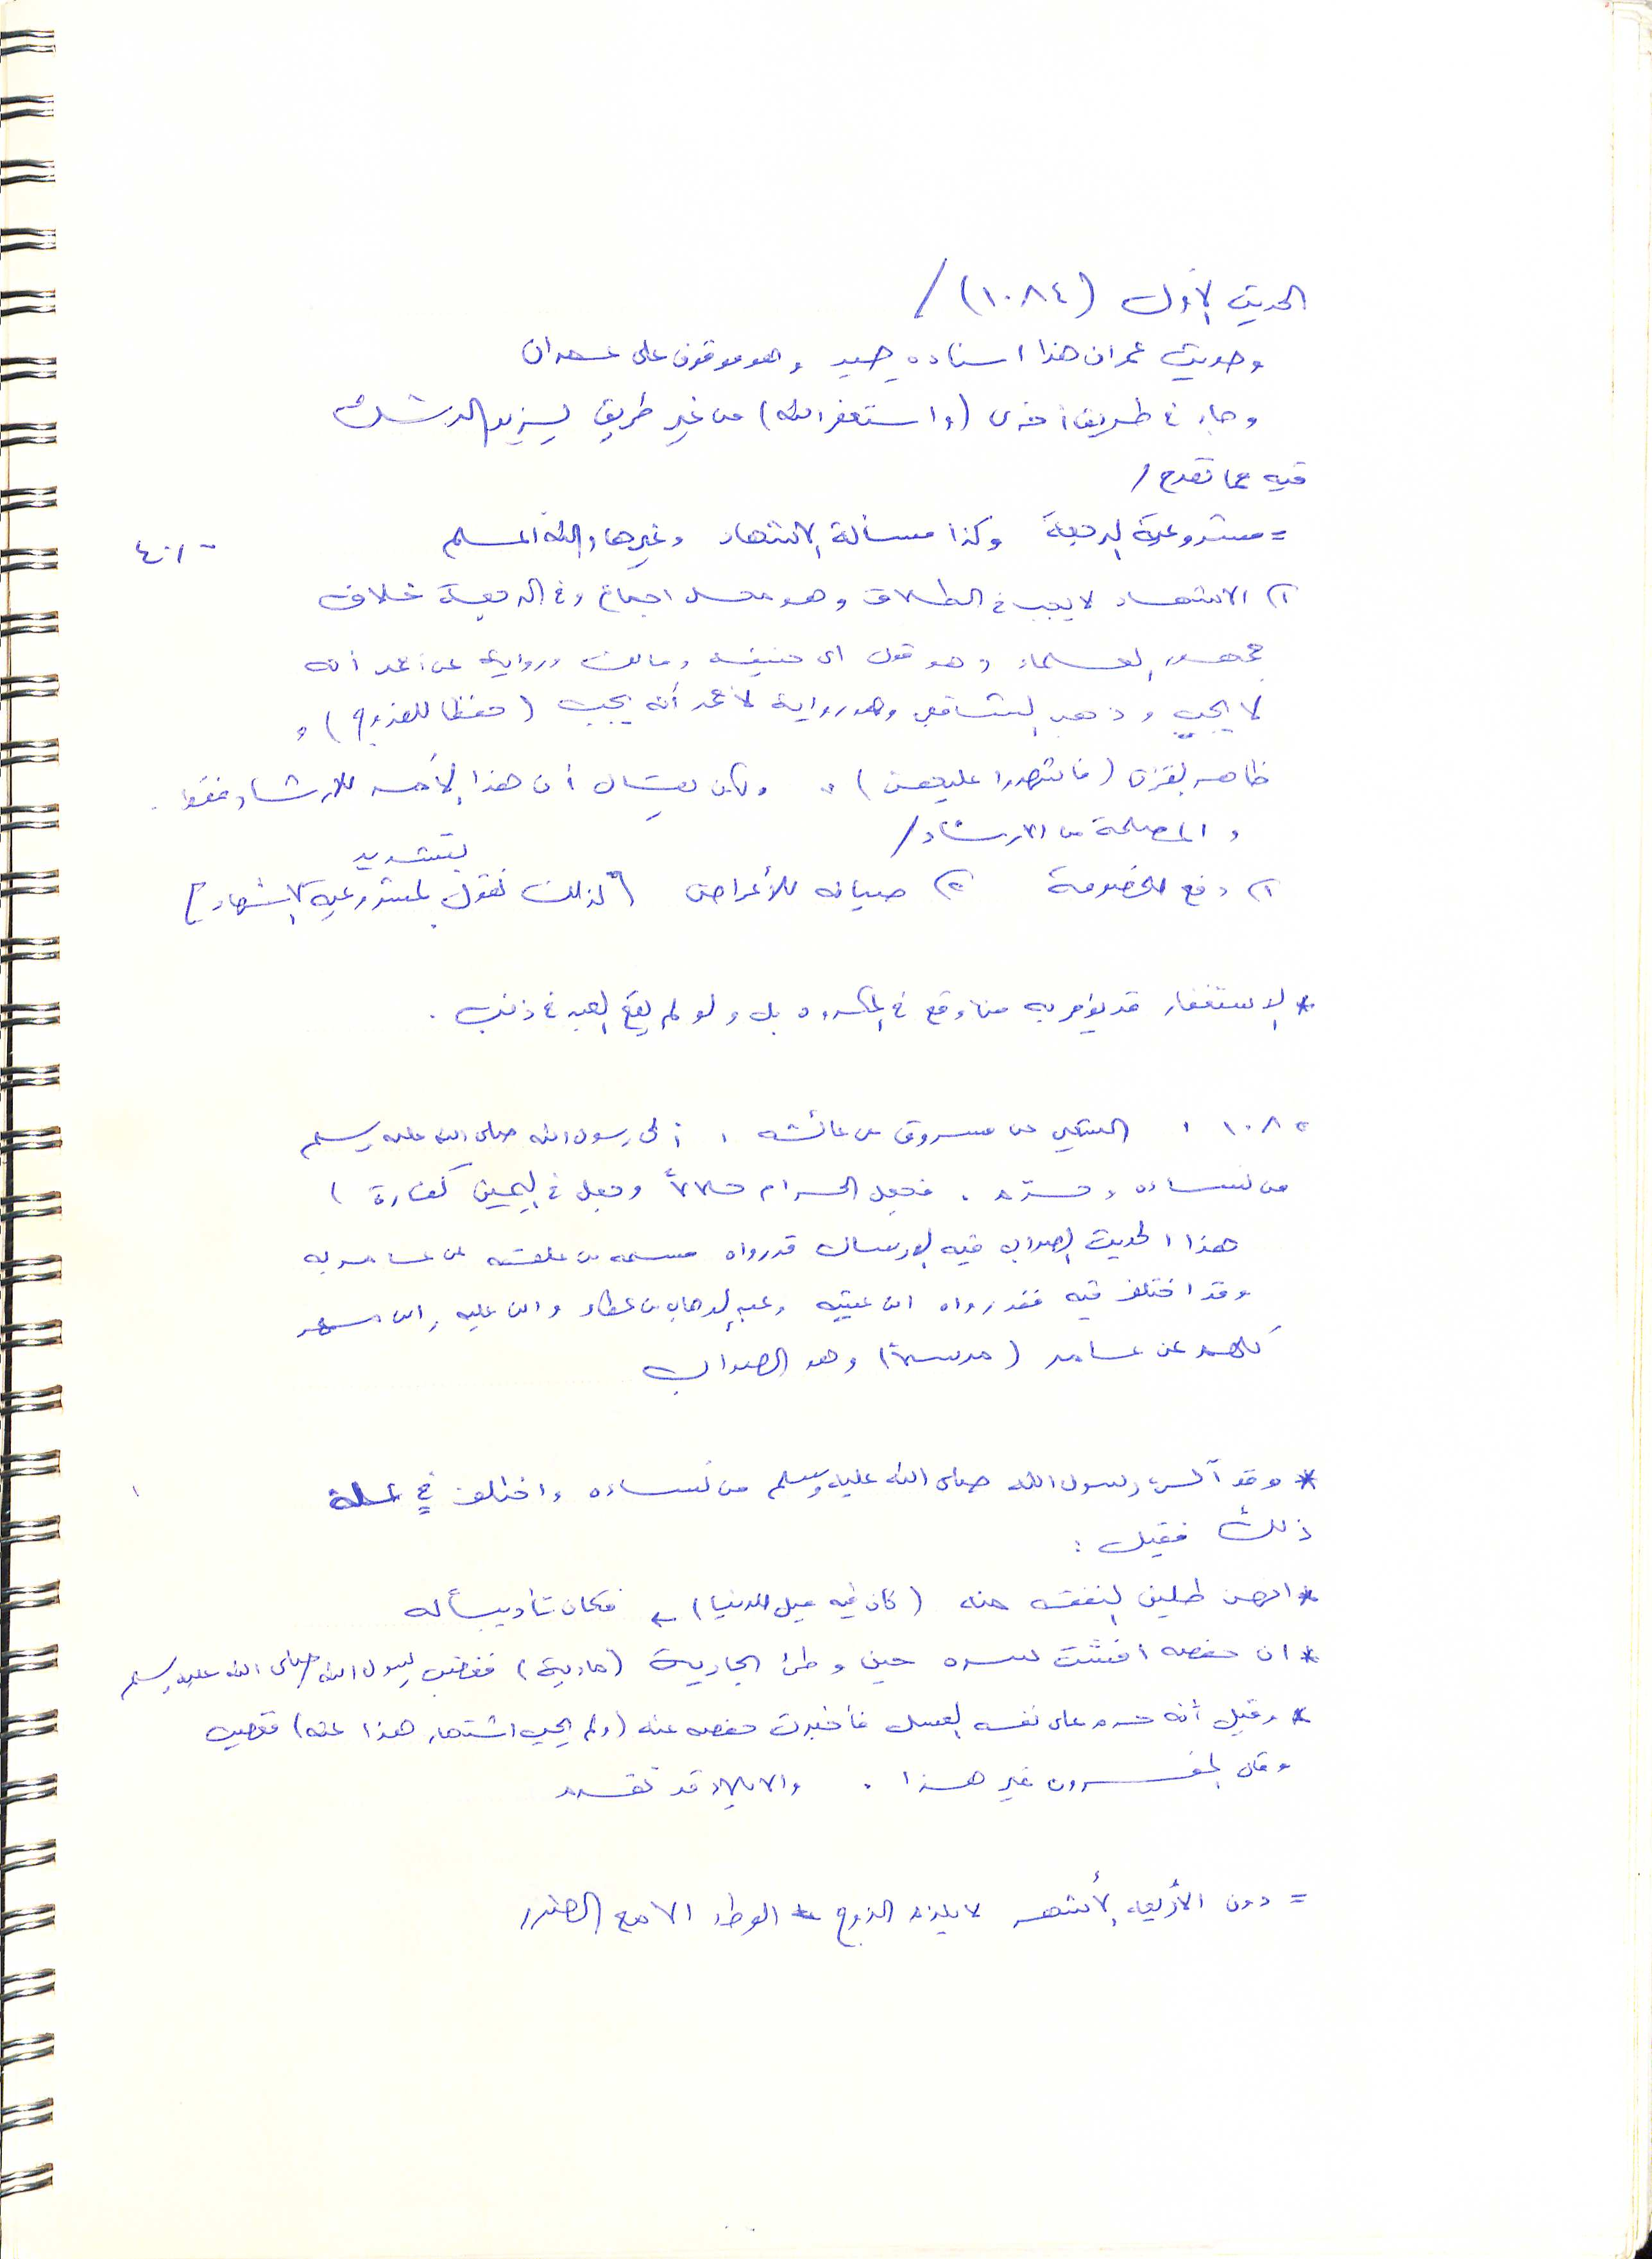 الحديث الأول (١٠٨٤) /
وحديث عمران هذا اسناده جيد وهو موقوف على عمران
وجاء في طريق أخرى (واستغفر الله) من غير طريق يزيد الرشك
فيه مما تقدم /
= مشروعية الرجعة وكذا مسألة الاشهاد وغيرها والله المسلم
١) الاشهاد لا يجب في الطلاق وهو محل اجماع وفي الرجعة خلاف
جمهور العلماء وهو قول أبي حنيفة ومالك ورواية عن أحمد أنه
لا يجب وذهب الشافعي وهو رواية لأحمد أنه يجب (حفظا للفروج) و
ظاهر القرآن (فاشهدوا عليهن) ولكن يقال أن هذا الأمر للإرشاد فقط .
والمصلحة من الارشاد /
١) دفع الخصومة ٢) صيانه للأعراض [لذلك نقول بمشروعية الاشهاد]
بتشديد
* الاستغفار قد يؤمر به من وقع في المكروه بل ولو لم يقع العبد في ذنب .
١٠٨٥ ، الشعبي عن مسروق عن عائشه ، آلى رسول الله صلى الله عليه وسلم
من نسائه وحرم . فجعل الحرام حلالاً وجعل في اليمين كفارة )
هذا الحديث الصواب فيه الإرسال قد رواه مسلمه بن علقمه عن عامر به
وقد اختلف فيه فقد رواه ابن عيينه وعبد الوهاب بن عطاء وابن عليه وابن مسهر
كلهم عن عامر (مرسلاً) وهو الصواب
* وقد آلى رسول الله صلى الله عليه وسلم من نسائه واختلف في علة
ذلك فقيل :
* انهن طلبن النفقه منه (كان فيه ميل للدنيا) ← فكان تأديباً له
* ان حفصه افشت لسره حين وطئ الجارية (مارية) فغضب رسول الله صلى الله عليه وسلم
* وقيل أنه حرم على نفسه العسل فأخبرت حفصه عنه (ولم يحب اشتهار هذا عنه) فغضب
وقال المفسرون غير هذا . والايلاء قد تقدم
= دون الأربعه الأشهر لا يلزم الزوج الوطء الا مع الضرر